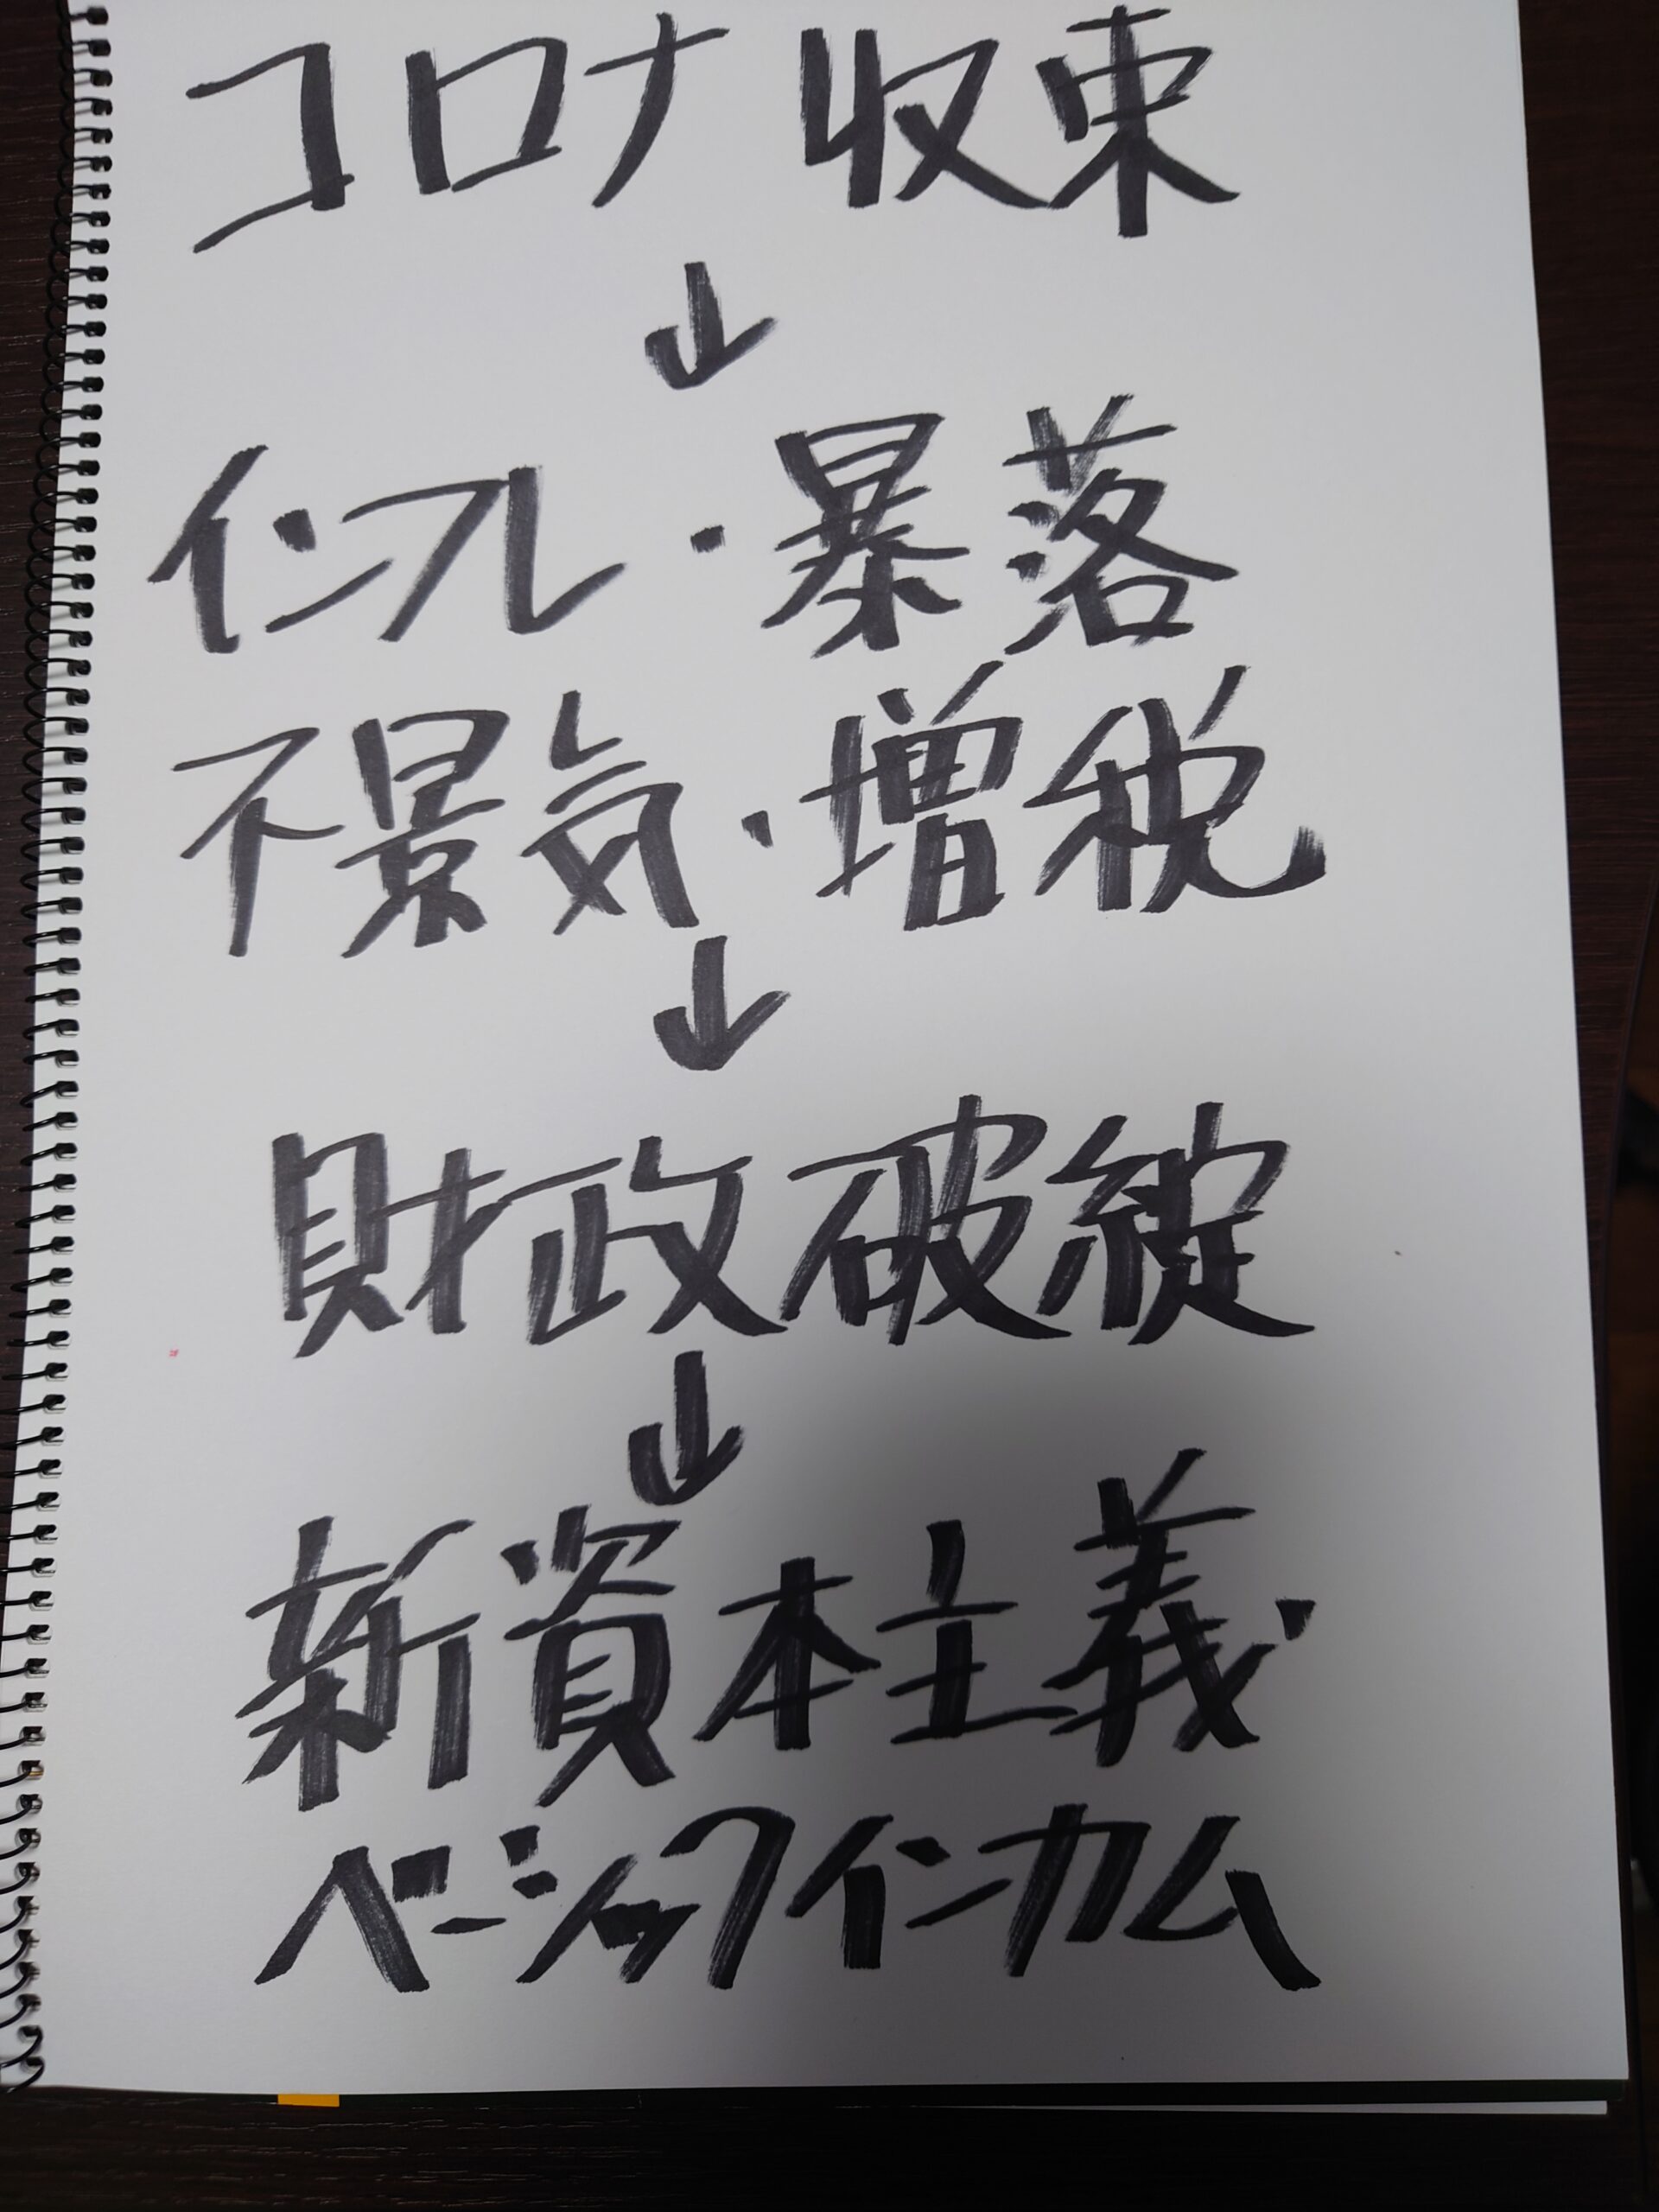 コロナ収束
↓
インフレ・暴落
不景気・増税
↓
財政破綻
↓
新資本主義・
ベーシックインカム